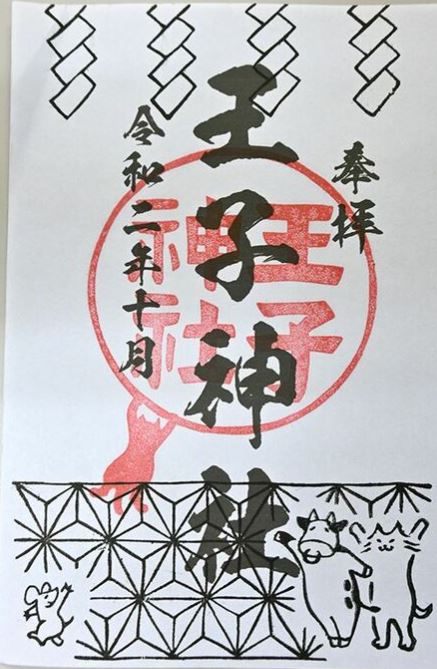 奉拝
王子神社
令和二年十月
王子
神社